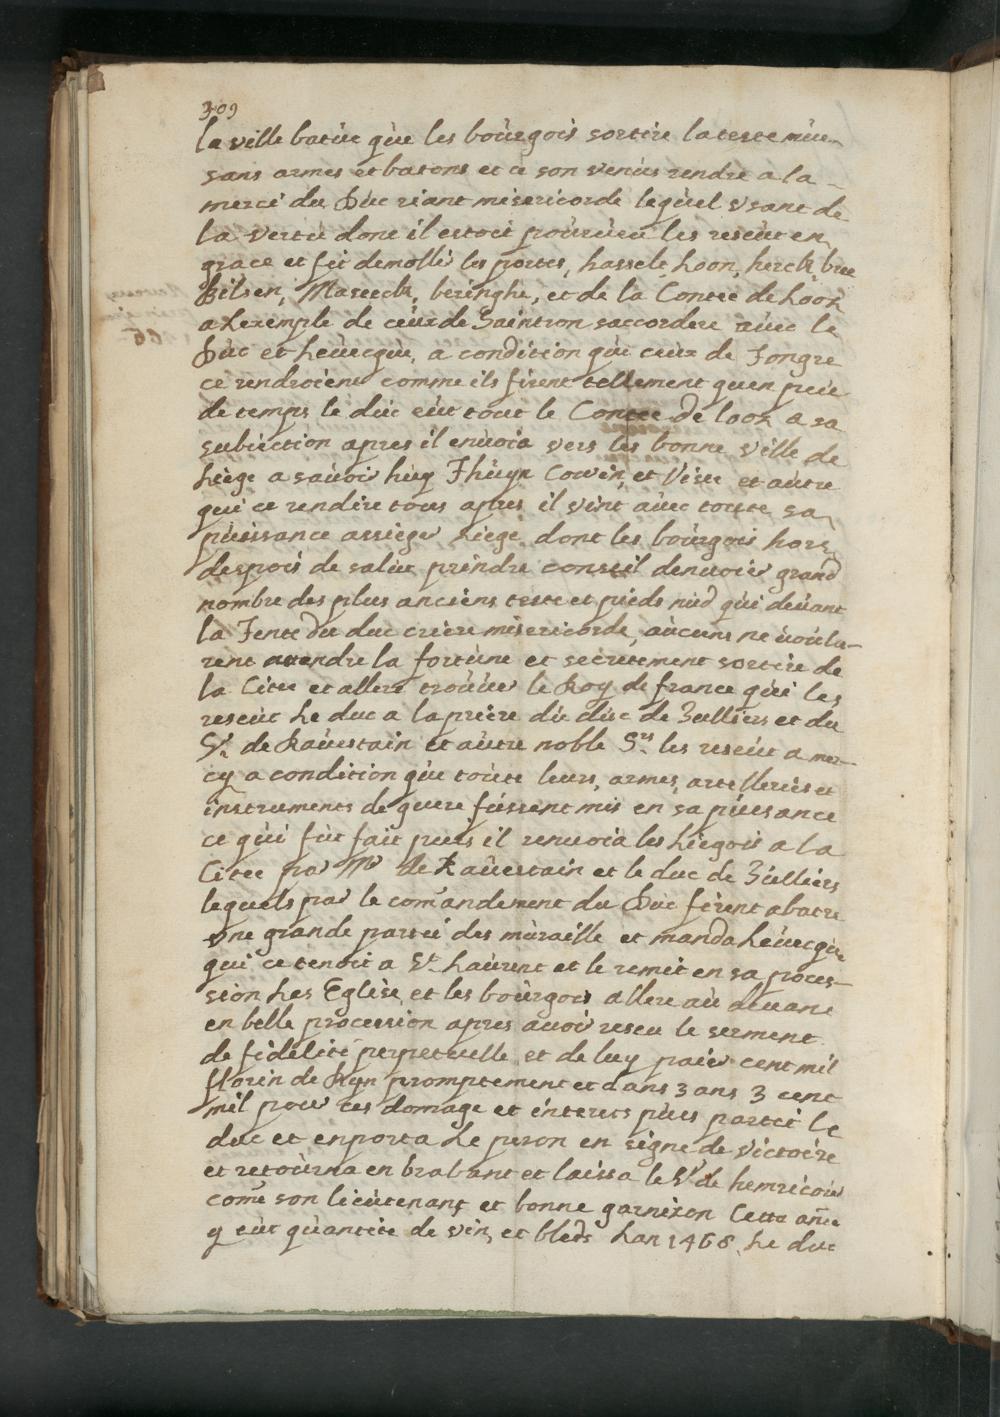 309
la ville batüe qüe les boürgois sortire la teste nüe
sans armes et batons et ce son venüs rendre a la
merci du Düc criant misericorde leqüel vsant de
la vertü dont il estoit poürüeu les reseüt en
grace et fit demollir les portes, hasselt, Loon, herck, bree
Bilsen, Maseeck, beringhe, et de la Contee de Looz
a Lexemple de ceüx de Saintron saccordere aüec le
Düc et Leüecqüe, a condition qüe ceüx de Tongre
ce rendroient comme ils firent tellement quen peü
de temps le düc eüt tout le Contee de looz a sa
subiection apres il enüoia vers les bonne ville de
Liege a savoir hüy Thüyn Covin, et Visee et autre
qui ce rendire tous apres il vint aüec toute sa
püissance assieger Liege dont les boürgois hors
despois de salüt prindre conseil denüoier grand
nombre des plus anciens teste et pieds nüd qüi deüant
la Tente du duc criere misericorde, aücuns ne voula-
rent attendre la fortüne et secretement sortire de
la Citee et allere troüüer le Roy de france qüi les
reseut Le duc a la priere du düc de Zulliers et du
Sr. de Raüestain et aütre noble Srs. les reseüt a mer-
cy a condition qüe toüte leurs, armes, artelleries et
instruments de guere füssent mis en sa püisance
ce qüi füt fait puis il renuoia les Liegois a la
Citee par Mr de Raüestain et le duc de Zülliers
lequels par le com̃andement du Düc firent abatre
vne grande partie des müraille et manda Leüecqüe
qüi ce tenoit a St. Laürent et le remit en sa proces-
sion Les Eglise, et les boürgois allere aü deuant
en belle procession apres auoir reseu le serment
de fidelité perpetuelle, et de luy paier cent mil
florin de Ryn promptement et dans 3 ans 3 cent
mil pour ces domage et interets püis partit le
duc et enporta Le peron en signe de victoire
et retoürna en brabant et laissa le Sr de hemricour
com̃e son lieütenant et bonne garnizon Cette añee
y eüt qüantite de vin, et bleds Lan 1468 Le duc